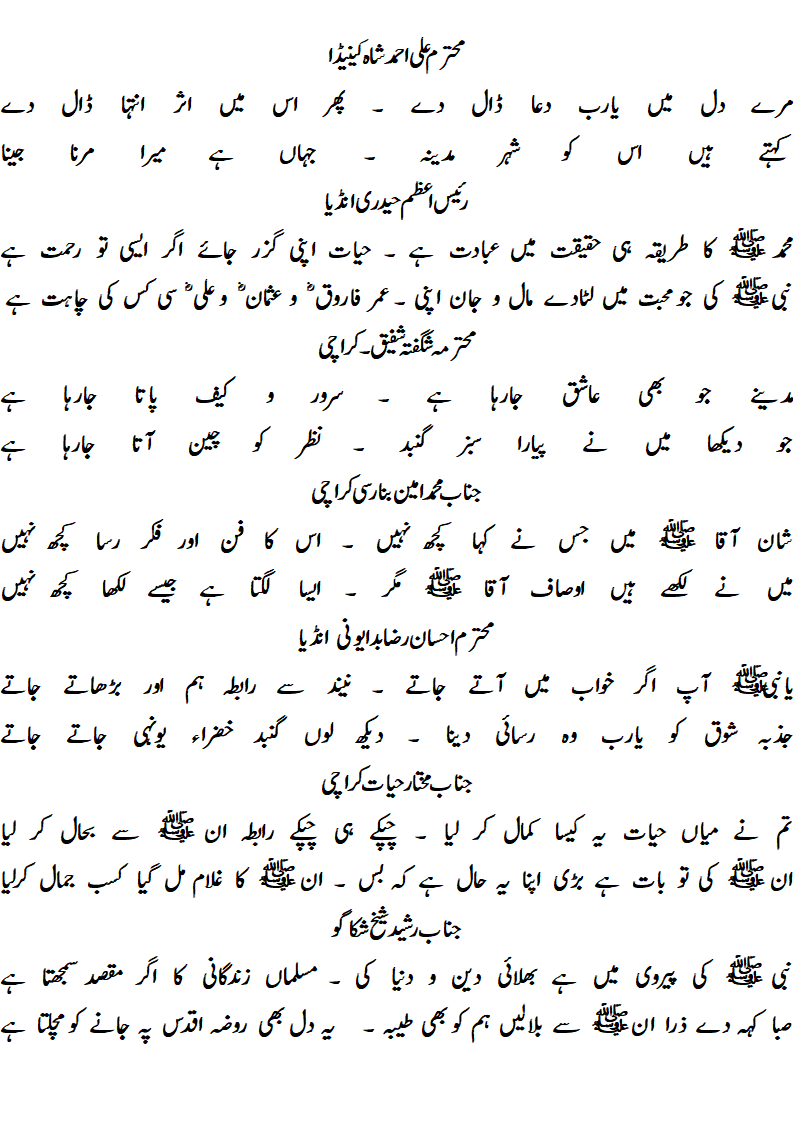 محترم علی احمد شاہ کینیڈا
مرے دل میں یارب دعا ڈال دے ۔ پھر اس میں اثر انتہا ڈال دے
کہتے ہیں اس کو شہر مدینہ ۔ جہاں ہے میرا مرنا جینا
رئیس اعظم حیدری انڈیا
محمد ﷺ کا طریقہ ہی حقیقت میں عبادت ہے ۔ حیات اپنی گزر جائے اگر ایسی تو رحمت ہے
نبی ﷺ کی جو محبت میں لٹادے مال و جان اپنی ۔ عمر فاروقؓ و عثمانؓ و علیؓ سی کس کی چاہت ہے
محترمہ شگفتہ شفیق۔ کراچی
مدینے جو بھی عاشق جارہا ہے ۔ سرور و کیف پاتا جارہا ہے
جو دیکھا میں نے پیارا سبز گنبد ۔ نظر کو چین آتا جارہا ہے
جناب محمد امین بنارسی کراچی
شان آقا ﷺ میں جس نے کہا کچھ نہیں ۔ اس کا فن اور فکر رسا کچھ نہیں
میں نے لکھے ہیں اوصاف آقا ﷺ مگر ۔ ایسا لگتا ہے جیسے لکھا کچھ نہیں
محترم احسان رضا بدایونی انڈیا
یانبیﷺ آپ اگر خواب میں آتے جاتے ۔ نیند سے رابطہ ہم اور بڑھاتے جاتے
جذبہ شوق کو یارب وہ رسائی دینا ۔ دیکھ لوں گنبد خضراء یونہی جاتے جاتے
جناب مختار حیات کراچی
تم نے میاں حیات یہ کیسا کمال کر لیا ۔ چپکے ہی چپکے رابطہ ان ﷺ سے بحال کر لیا
ان ﷺ کی تو بات ہے بڑی اپنا یہ حال ہے کہ بس ۔ ان ﷺ کا غلام مل گیا کسب جمال کرلیا
جناب رشید شیخ شکاگو
نبی ﷺ کی پیروی میں ہے بھلائی دین و دنیا کی ۔ مسلماں زندگانی کا اگر مقصد سمجھتا ہے
صبا کہہ دے ذرا ان ﷺ سے بلالیں ہم کو بھی طیبہ ۔ یہ دل بھی روضہ اقدس پہ جانے کو مچلتا ہے